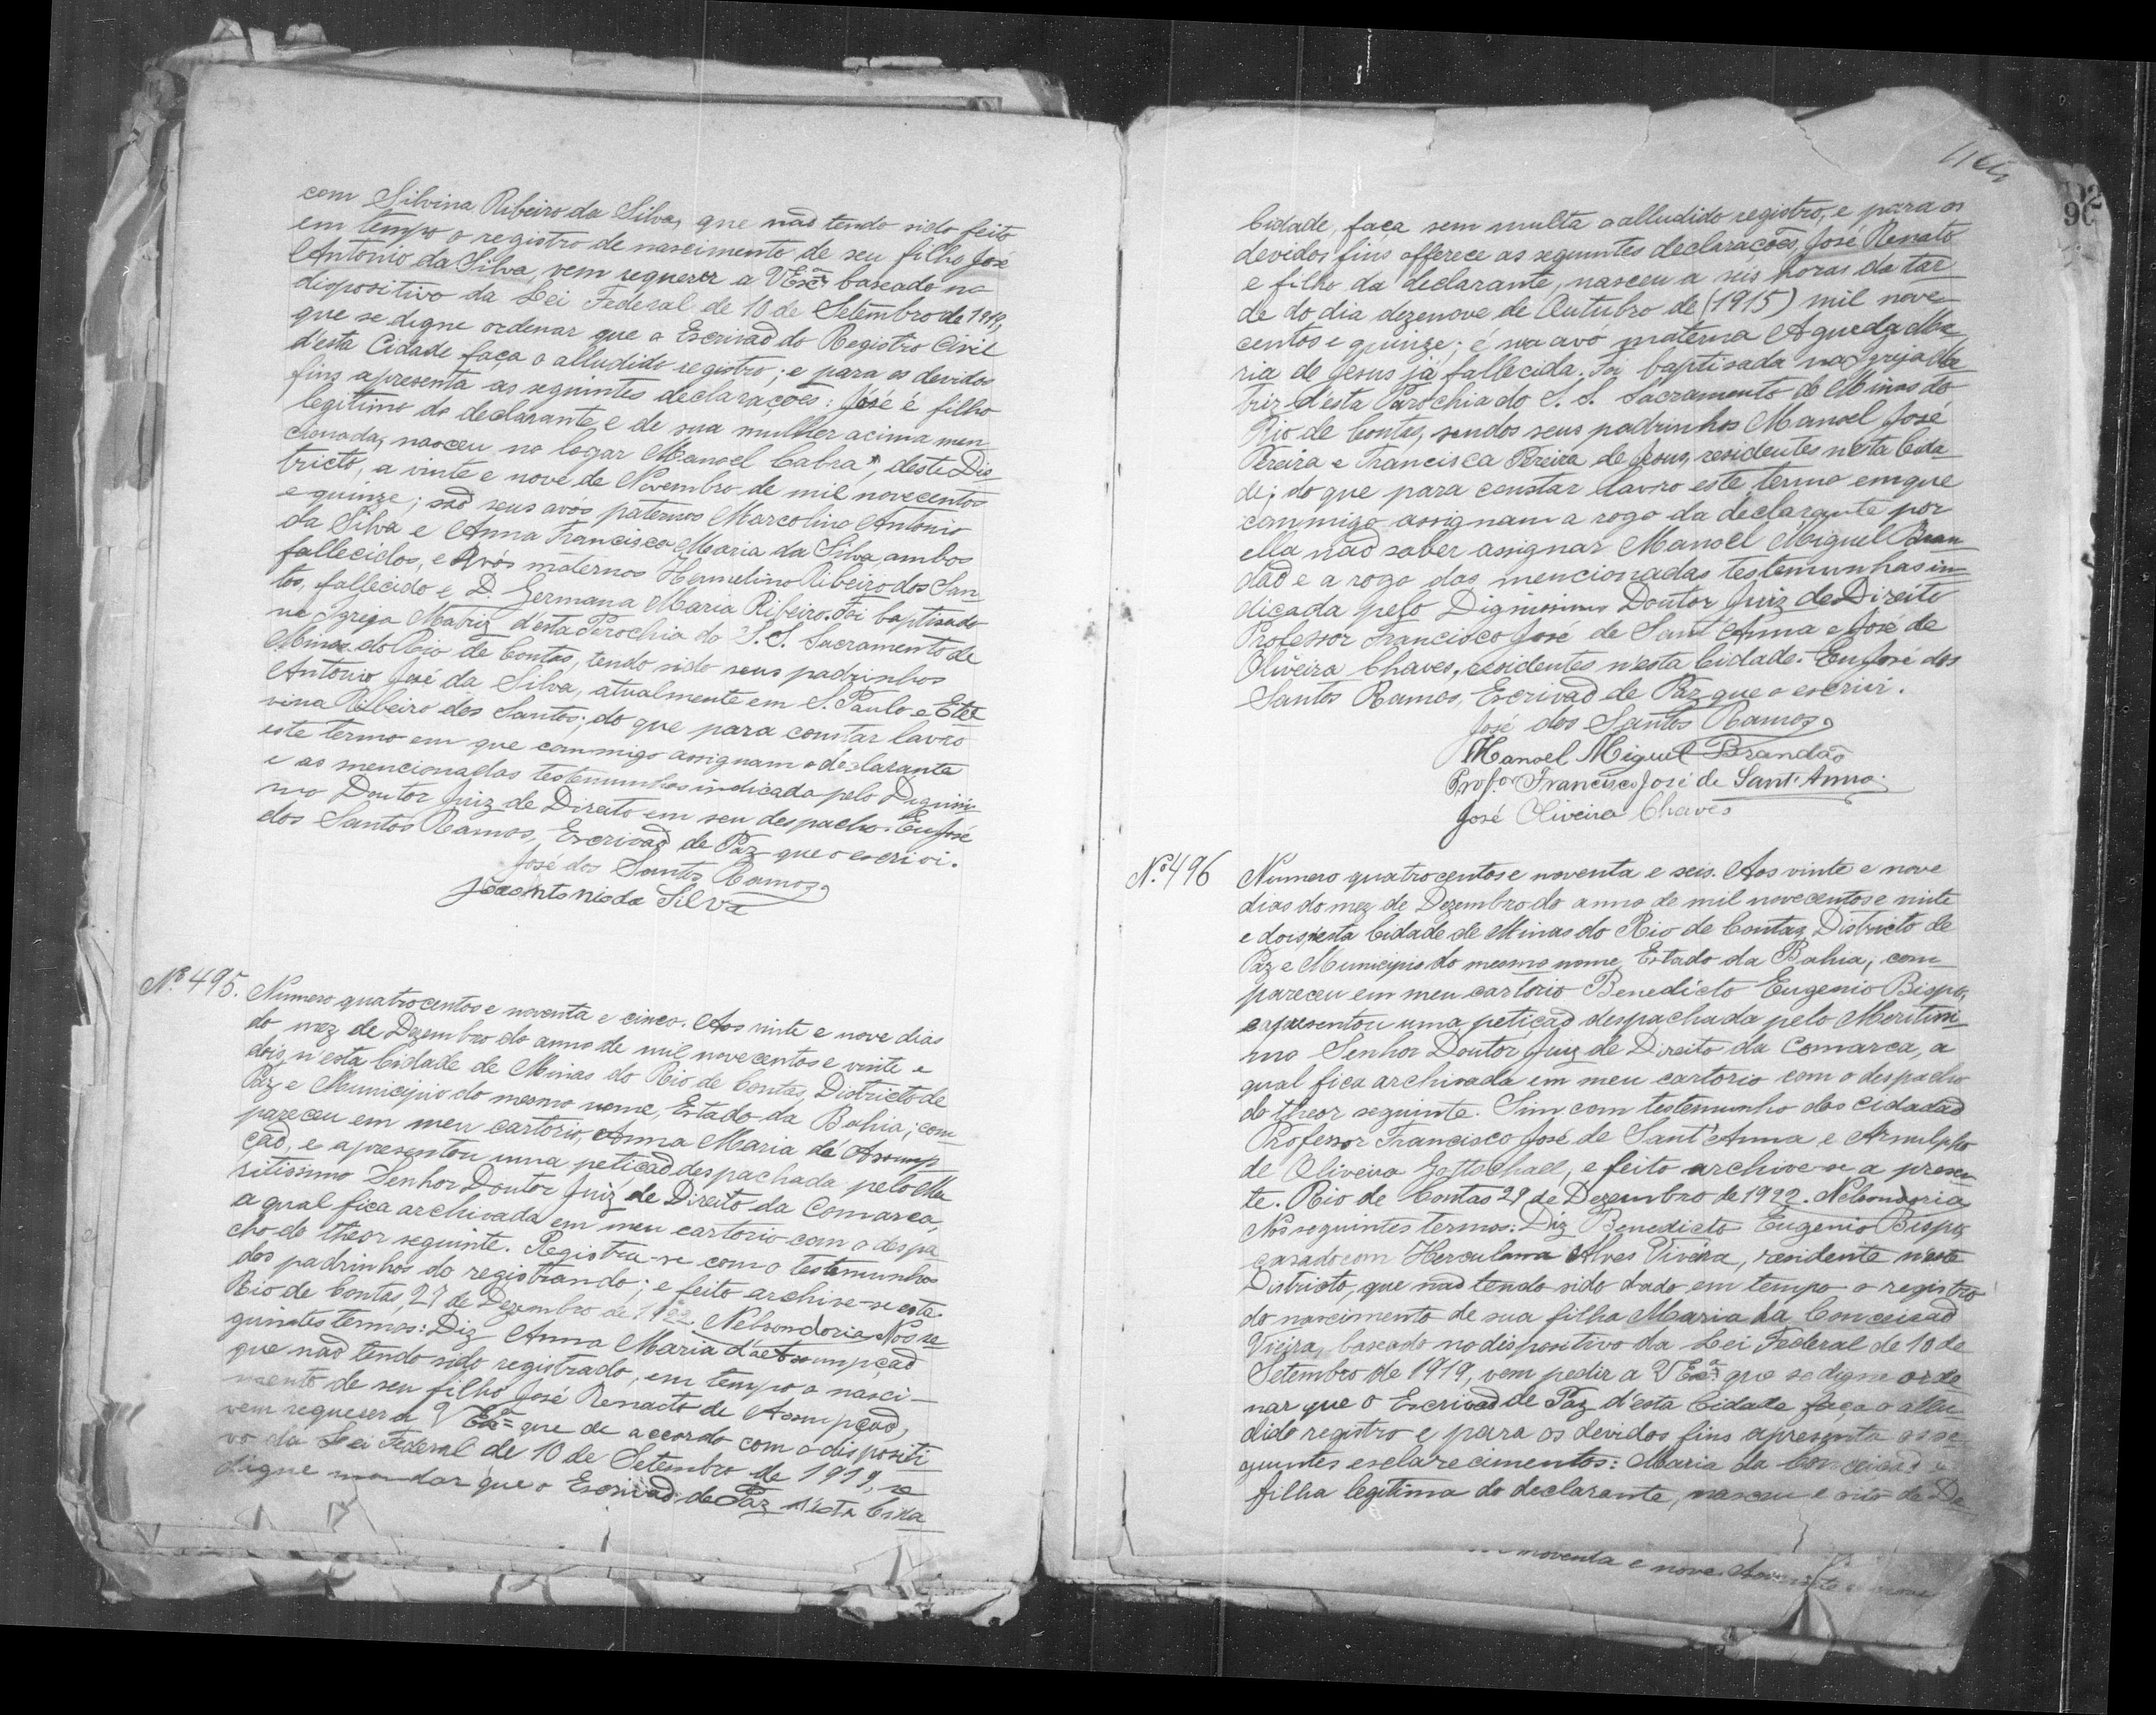 com Silvina Ribeiro da Silva, que não tendo sido feito
em tempo o registro de nascimento de seu filho José
Antonio da Silva, vem requerer a VExcª baseado no
dispositivo da Lei Federal de 10 de Setembro de 1919,
que se digne ordenar que o Escrivaõ do Registro Civil
d'esta Cidade faça o alludido registro; e para os devidos
fins apresenta as seguintes declarações: José é filho
legitimo do declarante e de sua mulher acima men
cionada, nasceu no logar "Manoel Cabra", deste Dis
tricto, a vinte e nove de Novembro de mil novecentos
e quinze; saõ seus avós paternos Marcolino Antonio
da Silva e Anna Francisca Maria da Silva, ambos
fallecidos, e avós maternos Hermelino Ribeiro dos San
tos, fallecido e D. Germana Maria Ribeiro. Foi baptisado
na Igreja Matriz d'esta Parochia do S. S. Sacramento de
Minas do Rio de Contas, tendo sido seus padrinhos
Antonio José da Silva, atualmente em S. Paulo e Etel
vina Ribeiro dos Santos; do que para constar lavro
este termo em que commigo assignam o declarante
e as mencionadas testemunhas indicada pelo Dignissi
mo Doutor Juiz de Direito em seu despacho. Eu José
dos Santos Ramos, Escrivaõ de Paz que o escrivi.
José dos Santos Ramos
Joaõ Antonio da Silva
Nº 495. Numero quatrocentos e noventa e cinco. Aos vinte e nove dias
do mez de Dezembro do anno de mil novecentos e vinte e
dois, n'esta Cidade de Minas do Rio de Contas, Districto de
Paz e Municipio do mesmo nome, Estado da Bahia; com
pareceu em meu cartorio, Anna Maria de Assump
çaõ, e apresentou uma petiçaõ despachada pelo Me
ritissimo Senhor Doutor Juiz de Direito da Comarca,
a qual fica archivada em meu cartorio com o despa
cho do theor seguinte. Registra-se com o testemunho
dos padrinhos do registrando; e feito archive-se esta.
Rio de Contas, 27 de Dezembro de 1922. Nelsondoria. Nos se
guintes termos: Diz Anna Maria d'aAssumpçaõ
que naõ tendo sido registrado, em tempo o nasci-
mento de seu filho José Renacto de Assumpçaõ,
vem requeser a VExª que de accordo com o dispositi
vo da Lei Federal de 10 de Setembro de 1919, se
digne mandar que o Escrivaõ de Paz d'esta Cida
Cidade, faça sem multa o alludido registro, e para os
devidos fins offerece as seguintes declarações, José Renato
e filho da declarante, nasceu a seis horas da tar
de do dia dezenove de Outubro de (1915) mil nove-
centos e quinze; é sua avó materna Agueda Ma
ria de Jesus já fallecida. Foi baptisada na Igreja Ma
triz d'esta Parochia do S. S. Sacramento de Minas do
Rio de Contas, sendos seus padrinhos Manoel José
Pereira e Francisca Pereira de Jesus, residentes n'esta Cida
de; do que para constar lavro este termo em que
commigo assignam a rogo da declarante por
ella naõ saber assignar Manoel Miguel Bran
daõ e a rogo das mencionadas testemunhas in-
dicada pelo Dignissimo Doutor Juiz de Direito
Professor Francisco José de Sant'Anna e José de
Oliveira Chaves, residentes n'esta Cidade. Eu José dos
Santos Ramos, Escrivaõ de Paz que o escrivi.
José dos Santos Ramos
Manoel Miguel Brandão
Prof.or Francisco José de Sant'Anna
José Oliveira Chaves
Nº 496 Numero quatrocentos e noventa e seis. Aos vinte e nove
dias do mez de Dezembro do anno de mil novecentos e vinte
e dois nesta Cidade de Minas do Rio de Contas, Districto de
Paz e Municipio do mesmo nome, Estado da Bahia, com-
pareceu em meu cartorio Benedicto Eugenio Bispo,
e apresentou uma petiçaõ despachada pelo Meritissi
mo Senhor Doutor Juiz de Direito da Comarca, a
qual fica archivada em meu cartorio com o despacho
do theor seguinte. Sim com testemunho dos cidadaõ
Professor Francisco José de Sant'Anna e Arnulpho
de Oliveira Gottschall, e feito archive-se a presen
te. Rio de Contas 29 de Dezembro de 1922. Nelsondoria
Nos seguintes termos: Diz Benedicto Eugenio Bispo,
casado com Herculana Alves Vieira, residente n'este
Districto, que naõ tendo sido dado em tempo o registro
do nascimento de sua filha Maria da Conceiçaõ
Vieira, baseado no dispositivo da Lei Federal de 10 de
Setembro de 1919, vem pedir a VExª que se digne orde
nar que o Escrivaõ de Paz d'esta Cidade faça o allu
dido registro e para os devidos fins apresenta os se
guintes esclarecimentos: Maria da Conceiçaõ é
filha legitima do declarante, nasceu e oito de De
noventa e nove. Aos vinte e nove